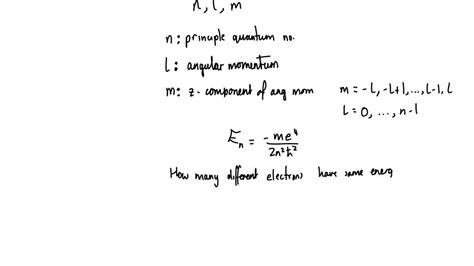 n, l, m
n: principle quantum no.
l: angular momentum
m: z-component of ang mom m = -l, -l+1, ..., l-1, l
l = 0, ..., n-1
E_n = -me^4 / 2n^2ħ^2
How many different electrons have same energ